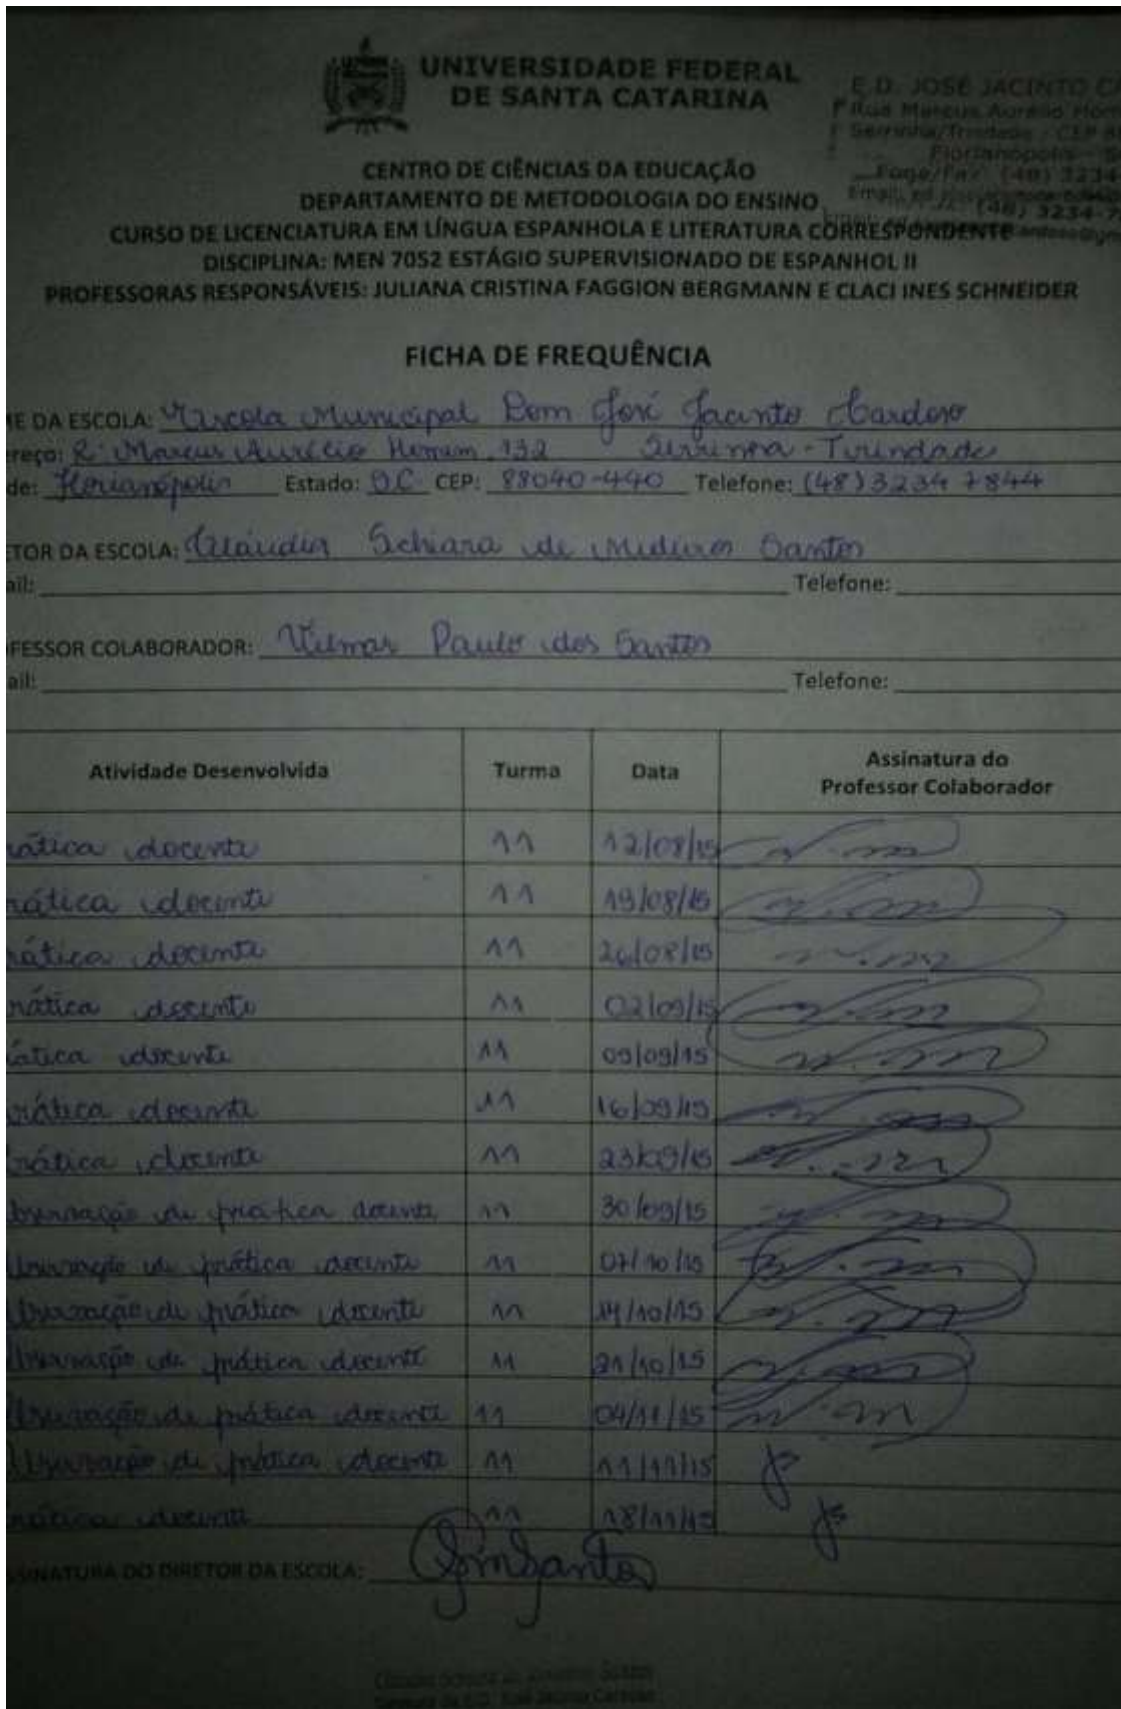 UNIVERSIDADE FEDERAL
DE SANTA CATARINA
E.D. JOSÉ JACINTO
Rua Marcus Aurélio
Serrinha/Trindade - CEP
Florianópolis -
Fone/Fax: (48) 3234-
(48) 3234-7
CENTRO DE CIÊNCIAS DA EDUCAÇÃO
DEPARTAMENTO DE METODOLOGIA DO ENSINO
CURSO DE LICENCIATURA EM LÍNGUA ESPANHOLA E LITERATURA CORRESPONDENTE
DISCIPLINA: MEN 7052 ESTÁGIO SUPERVISIONADO DE ESPANHOL II
PROFESSORAS RESPONSÁVEIS: JULIANA CRISTINA FAGGION BERGMANN E CLACI INES SCHNEIDER
FICHA DE FREQUÊNCIA
ME DA ESCOLA: Escola Municipal Dom José Jacinto Cardoso
ereço: R: Marcus Aurélio Homem, 132 Serrinha - Trindade
de: Florianópolis Estado: SC CEP: 88040-440 Telefone: (48) 3234 7844
ETOR DA ESCOLA: Cláudia Schiara de Medeiros Santos
ail: Telefone:
FESSOR COLABORADOR: Vilmar Paulo dos Santos
ail: Telefone:
Atividade Desenvolvida Turma Data Assinatura do Professor Colaborador
rática docente 11 12/08/15
rática docente 11 19/08/15
rática docente 11 26/08/15
rática docente 11 02/09/15
rática docente 11 09/09/15
rática docente 11 16/09/15
rática docente 11 23/09/15
bservação de prática docente 11 30/09/15
bservação de prática docente 11 07/10/15
bservação de prática docente 11 14/10/15
bservação de prática docente 11 21/10/15
bservação de prática docente 11 04/11/15
bservação de prática docente 11 11/11/15
rática docente 11 18/11/15
SSINATURA DO DIRETOR DA ESCOLA: SmSantos